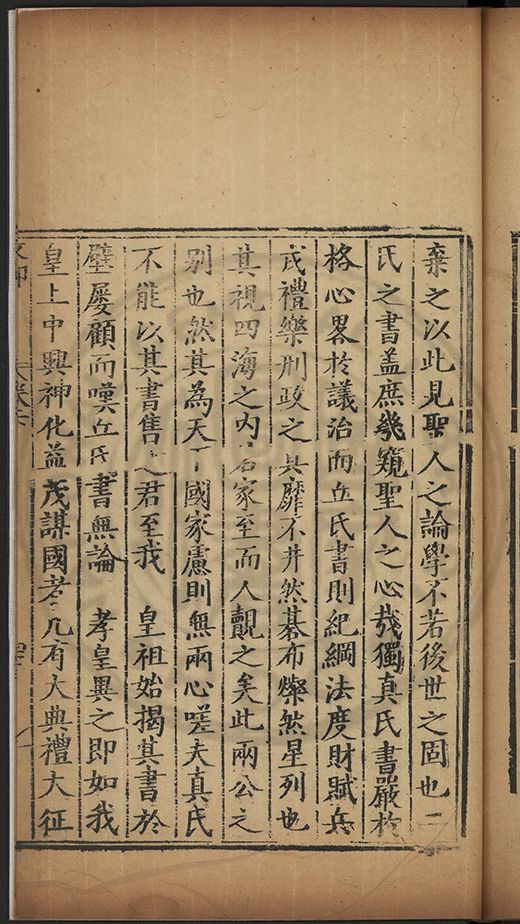 棄之以此見聖人之論學不若後世之固也二
氏之書盖庶幾窺聖人之心哉獨真氏書嚴於
格心畧於議治而丘氏書則紀綱法度財賦兵
戎禮樂刑政之具靡不井然碁布燦然星列也
其視四海之内若家至而人覿之矣此兩公之
别也然其為天下國家慮則無兩心嗟夫真氏
不能以其書售之君至我 皇祖始揭其書於
壁屡顧而嘆丘氏書無論 孝皇異之即如我
皇上中興神化益茂謀國者凡有大典禮大征